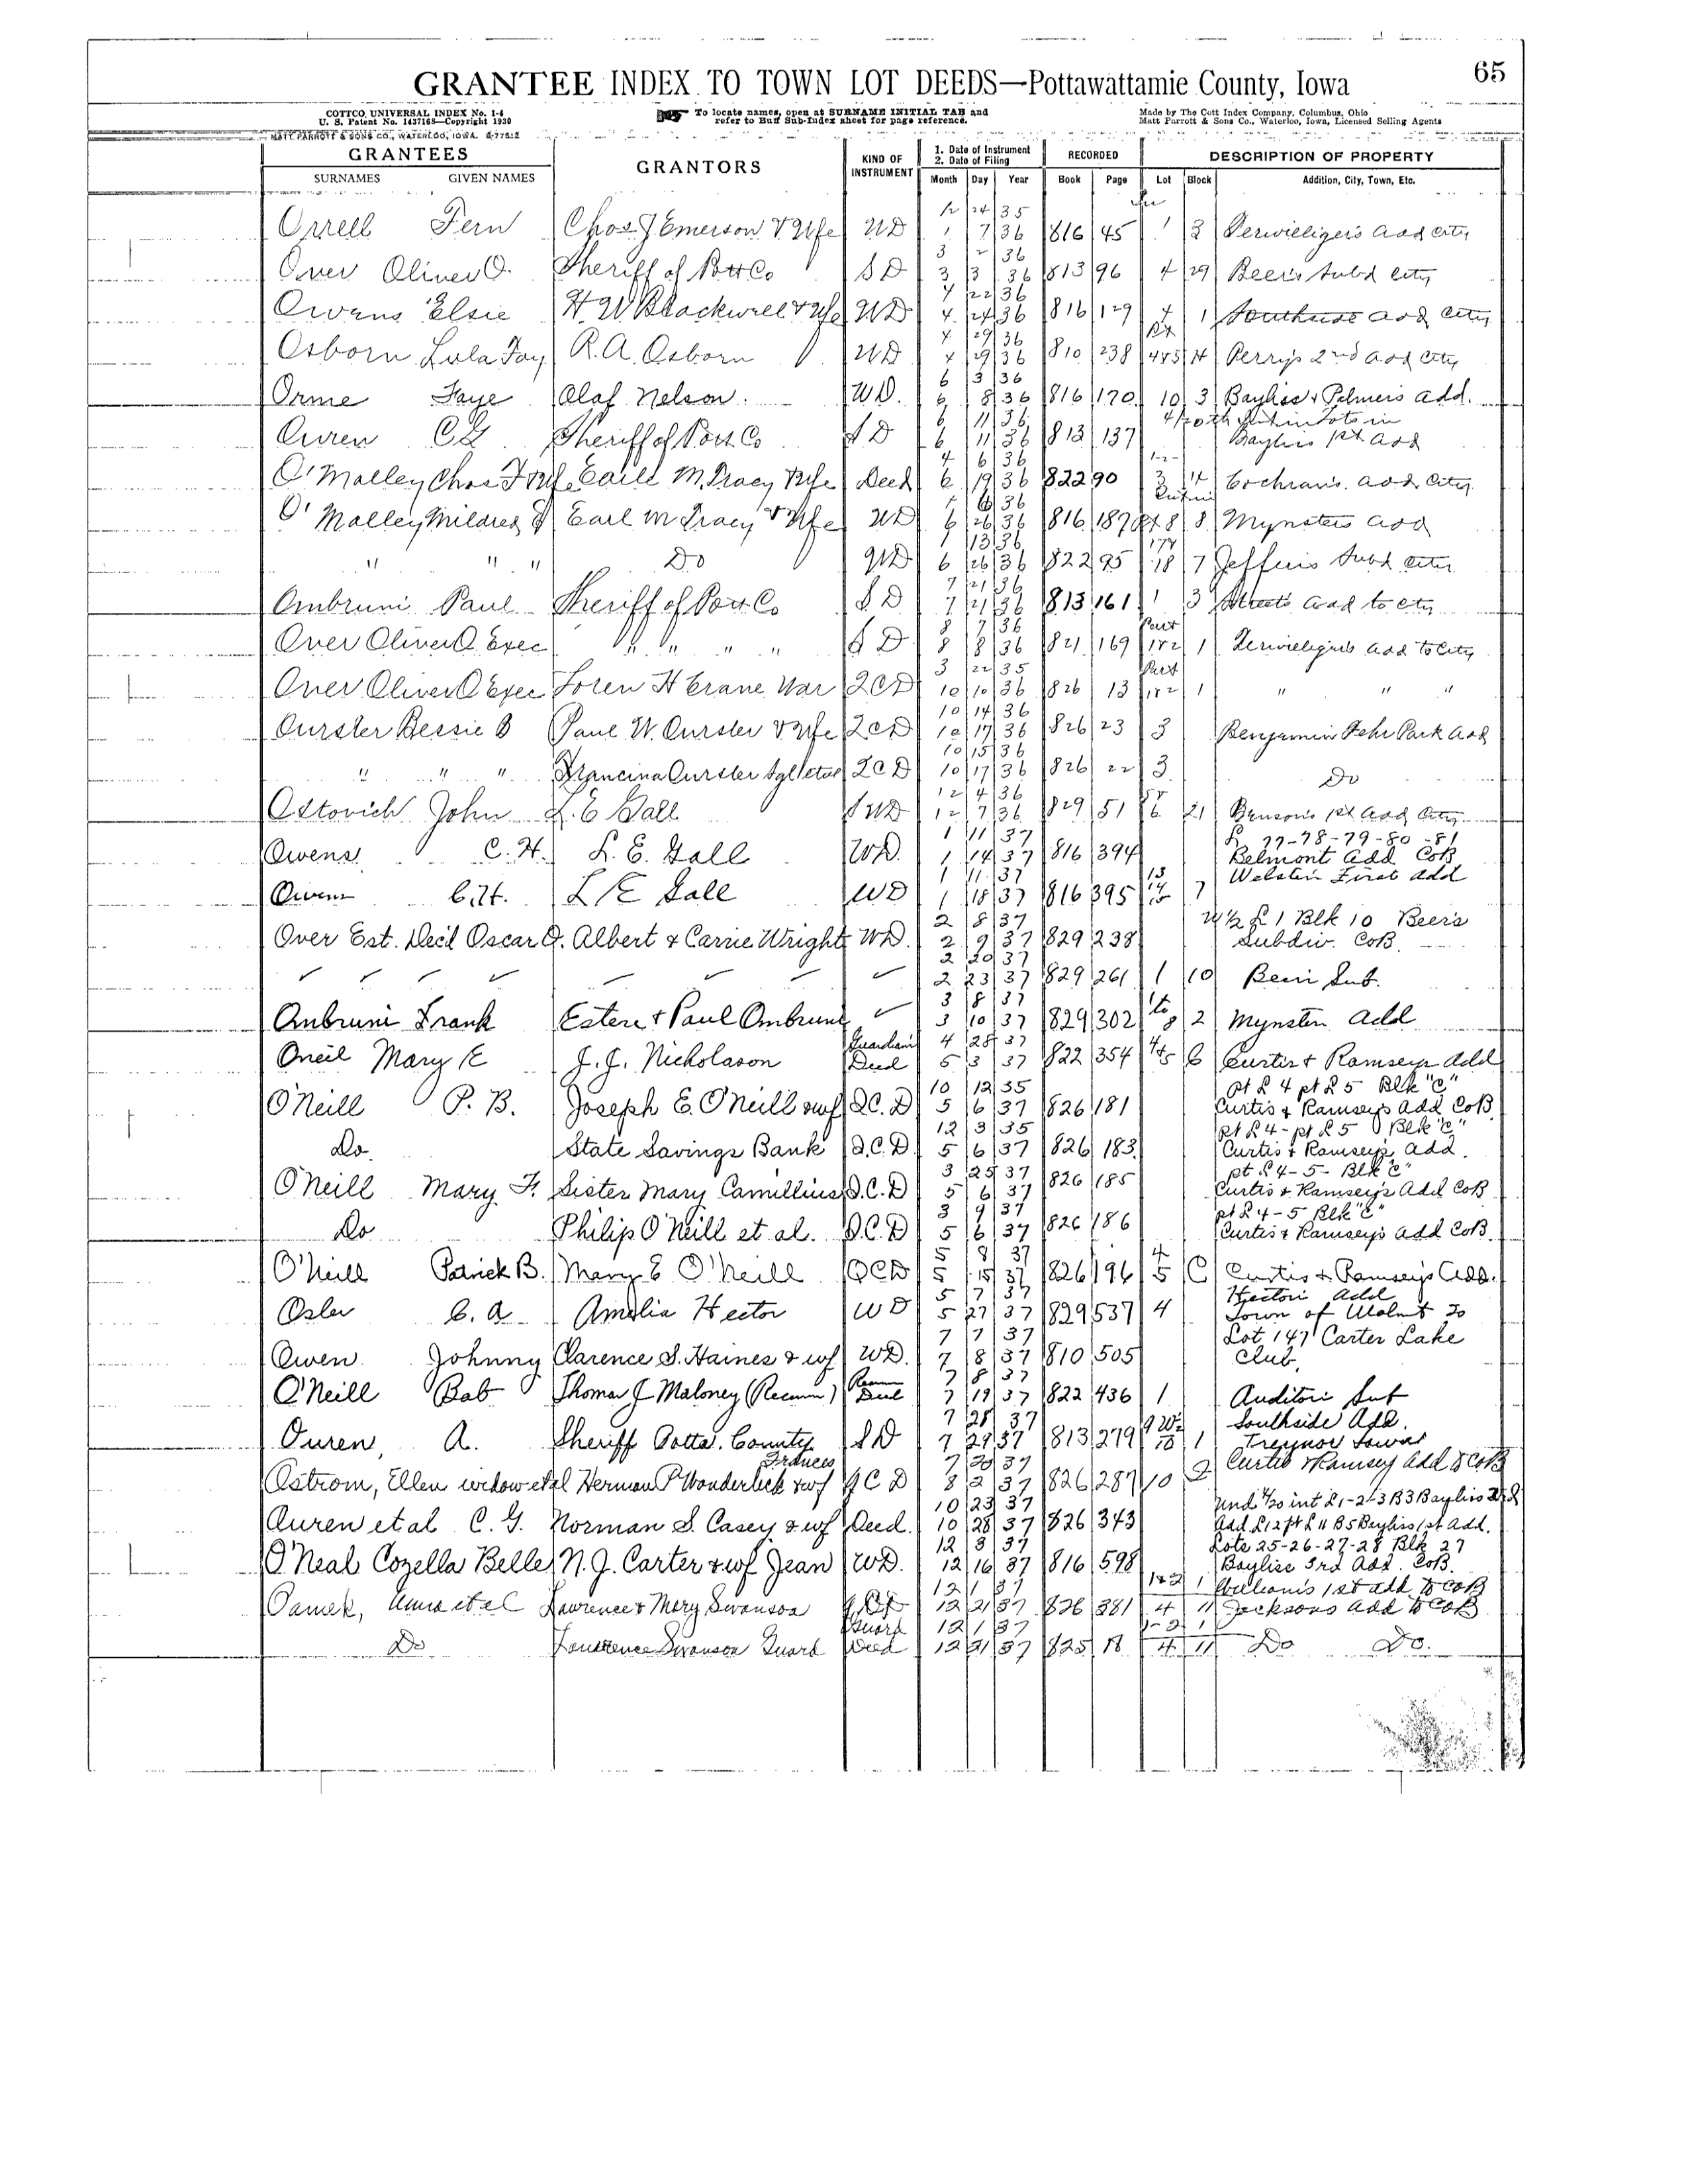 65
GRANTEE INDEX TO TOWN LOT DEEDS—Pottawattamie County, Iowa
COTTCO UNIVERSAL INDEX No. 1-4
U. S. Patent No. 1437168—Copyright 1930
MATT PARROTT & SONS CO., WATERLOO, IOWA.
To locate names, open at SURNAME INITIAL TAB and
refer to Buff Sub-Index sheet for page reference.
Made by The Cott Index Company, Columbus, Ohio
Matt Parrott & Sons Co., Waterloo, Iowa, Licensed Selling Agents
GRANTEES GRANTORS KIND OF INSTRUMENT 1. Date of Instrument 2. Date of Filing RECORDED DESCRIPTION OF PROPERTY
SURNAMES GIVEN NAMES Month Day Year Book Page Lot Block Addition, City, Town, Etc.
12 24 35
Orrell Fern Chas J Emerson & Wife WD 1 7 36 816 45 1 3 Terwilliger's add city
3 2 36
Over Oliver O. Sheriff of Pott Co S D 3 3 36 813 96 4 29 Beer's Subd City
4 22 36
Owens Elsie H. W Blackwell & Wfe WD 4 24 36 816 129 1 add City
4 29 36
Osborn Lula Fay R. A. Osborn WD 4 29 36 810 238 4&5 14 Perry's 2nd add City
6 3 36
Orme Faye Olaf Nelson. WD. 6 8 36 816 170 10 3 Bayliss & Palmers add.
6 11 36 4/20th in Lots in
Auren C G Sheriff of Pott Co S D 6 11 36 813 137 Bayliss 1st Add
4 6 36 1-2-
O'Malley Chas F Earll M. Tracy & Wfe Deed 6 19 36 822 90 3 14 Cochran's add City
6 36
O'Malley Mildred J Earl M Tracy & Wfe WD 6 26 36 816 187 8 8 Mynsters add
13 36
" " " Do WD 6 26 36 822 95 18 7 Jefferis Subd City
7 21 36
Ombruni Paul Sheriff of Pott Co S D 7 21 36 813 161 1 3 Streets add to City
8 7 36 Part
Over Oliver O Exec " " " " S D 8 8 36 821 169 1&2 1 Terwilligers add to City
3 22 35 Part
Over Oliver O Exec Loren H Crane War QCD 10 10 36 826 13 1&2 1 " " "
10 14 36
Ourster Bessie B Paul W. Ourster & Wfe QCD 10 17 36 826 23 3 Benjamin Fehr Park Add
10 15 36
" " " Francina Ourster Sgl et al QCD 10 17 36 826 22 3 Do
12 4 36 5&
Ostovich John L. E Gall WD 12 7 36 829 51 6 21 Benson's 1st Add City
1 11 37 L 77-78-79-80-81
Owens C. H. L. E. Gall WD. 1 14 37 816 394 Belmont Add CoB
1 11 37 13 Websters First Add
Owens C. H. L E Gall WD 1 18 37 816 395 14 15 7
2 8 37 W½ L 1 Blk 10 Beer's
Over Est. Dec'd Oscar O. Albert & Carrie Wright WD. 2 9 37 829 238 Subdiv. CoB.
2 20 37
✓ ✓ ✓ ✓ ✓ ✓ ✓ ✓ 2 23 37 829 261 1 10 Beers Sub.
3 8 37 1 to
Ombruni Frank Estere & Paul Ombruni ✓ 3 10 37 829 302 8 2 Mynster Add
Guardian's 4 28 37
Oneil Mary E J. J. Nicholason Deed 5 3 37 822 354 4&5 C Curtis & Ramseys Add
10 12 35 pt L 4 pt L 5 Blk "C"
O'Neill P. B. Joseph E. O'Neill & wf Q.C.D 5 6 37 826 181 Curtis & Ramseys Add CoB
12 3 35 pt L 4 - pt L 5 Blk "C"
Do. State Savings Bank Q.C.D 5 6 37 826 183 Curtis & Ramsey's Add.
3 25 37 pt L 4-5- Blk "C"
O'Neill Mary F. Sister Mary Camillius Q.C.D 5 6 37 826 185 Curtis & Ramsey's Add CoB
3 9 37 pt L 4-5 Blk "C"
Do Philip O'Neill et al. Q.C.D 5 6 37 826 186 Curtis & Ramsey's Add CoB.
5 8 37 4
O'Neill Patrick B. Mary E O'Neill QCD 5 15 37 826 196 5 C Curtis & Ramseys Add.
5 7 37 Hectors Add
Osler C. A Amelia Hector WD 5 27 37 829 537 4 Town of Walnut Io
7 7 37 Lot 147 Carter Lake
Owen Johnny Clarence S. Haines & wf WD. 7 8 37 810 505 Club.
7 8 37
O'Neill Bab Thomas J Maloney (Receiver) Deed 7 19 37 822 436 1 Auditors Sub
7 28 37 9 W½ Southside Add.
Ouren, A. Sheriff Potta. County S D 7 29 37 813 279 10 1 Treynor Iowa
Frances 7 30 37 Curtis & Ramsey Add to CoB
Ostrom, Ellen widow et al Herman P Wonderlick & wf Q C D 8 2 37 826 287 10 2
10 23 37 Und 4/20 int L 1-2-3 B 3 Bayliss 2nd
Auren et al C. G. Norman S. Casey & wf Deed. 10 28 37 826 343 Add. L 12 pt L 11 B 5 Bayliss 1st Add.
12 3 37 Lots 25-26-27-28 Blk 27
O'Neal Cozella Belle N. J. Carter & wf Jean WD. 12 16 37 816 598 Bayliss 3rd Add. CoB.
12 1 37 1&2 1 Williams 1st add to CoB
Pamek, Anna et al Lawrence & Mary Swanson 12 21 37 826 381 4 11 Jacksons Add to CoB
Guard 12 1 37 1-2 1
Do Lawrence Swanson Guard Deed 12 21 37 825 18 4 11 Do Do.